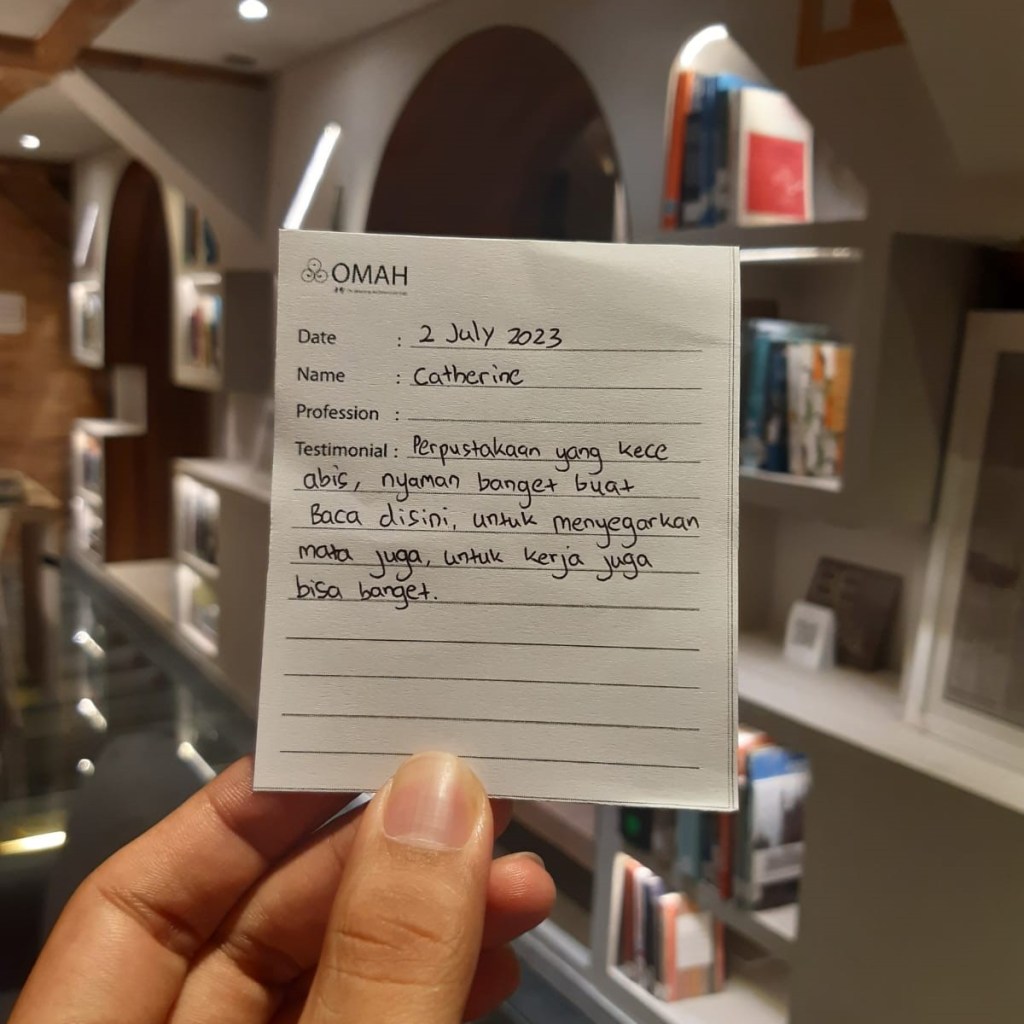 OMAH
Date : 2 July 2023
Name : Catherine
Profession :
Testimonial : Perpustakaan yang kece
abis, nyaman banget buat
Baca disini, untuk menyegarkan
mata juga, untuk kerja juga
bisa banget.